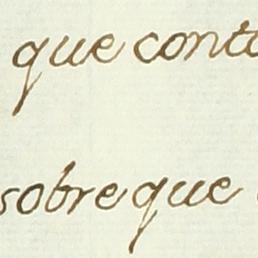 que conta
sobre que